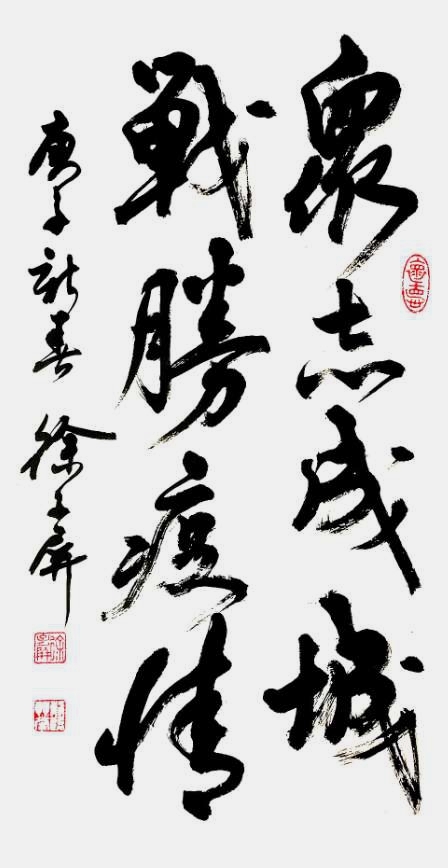 眾志成城
戰勝疫情
庚子新春 徐屏